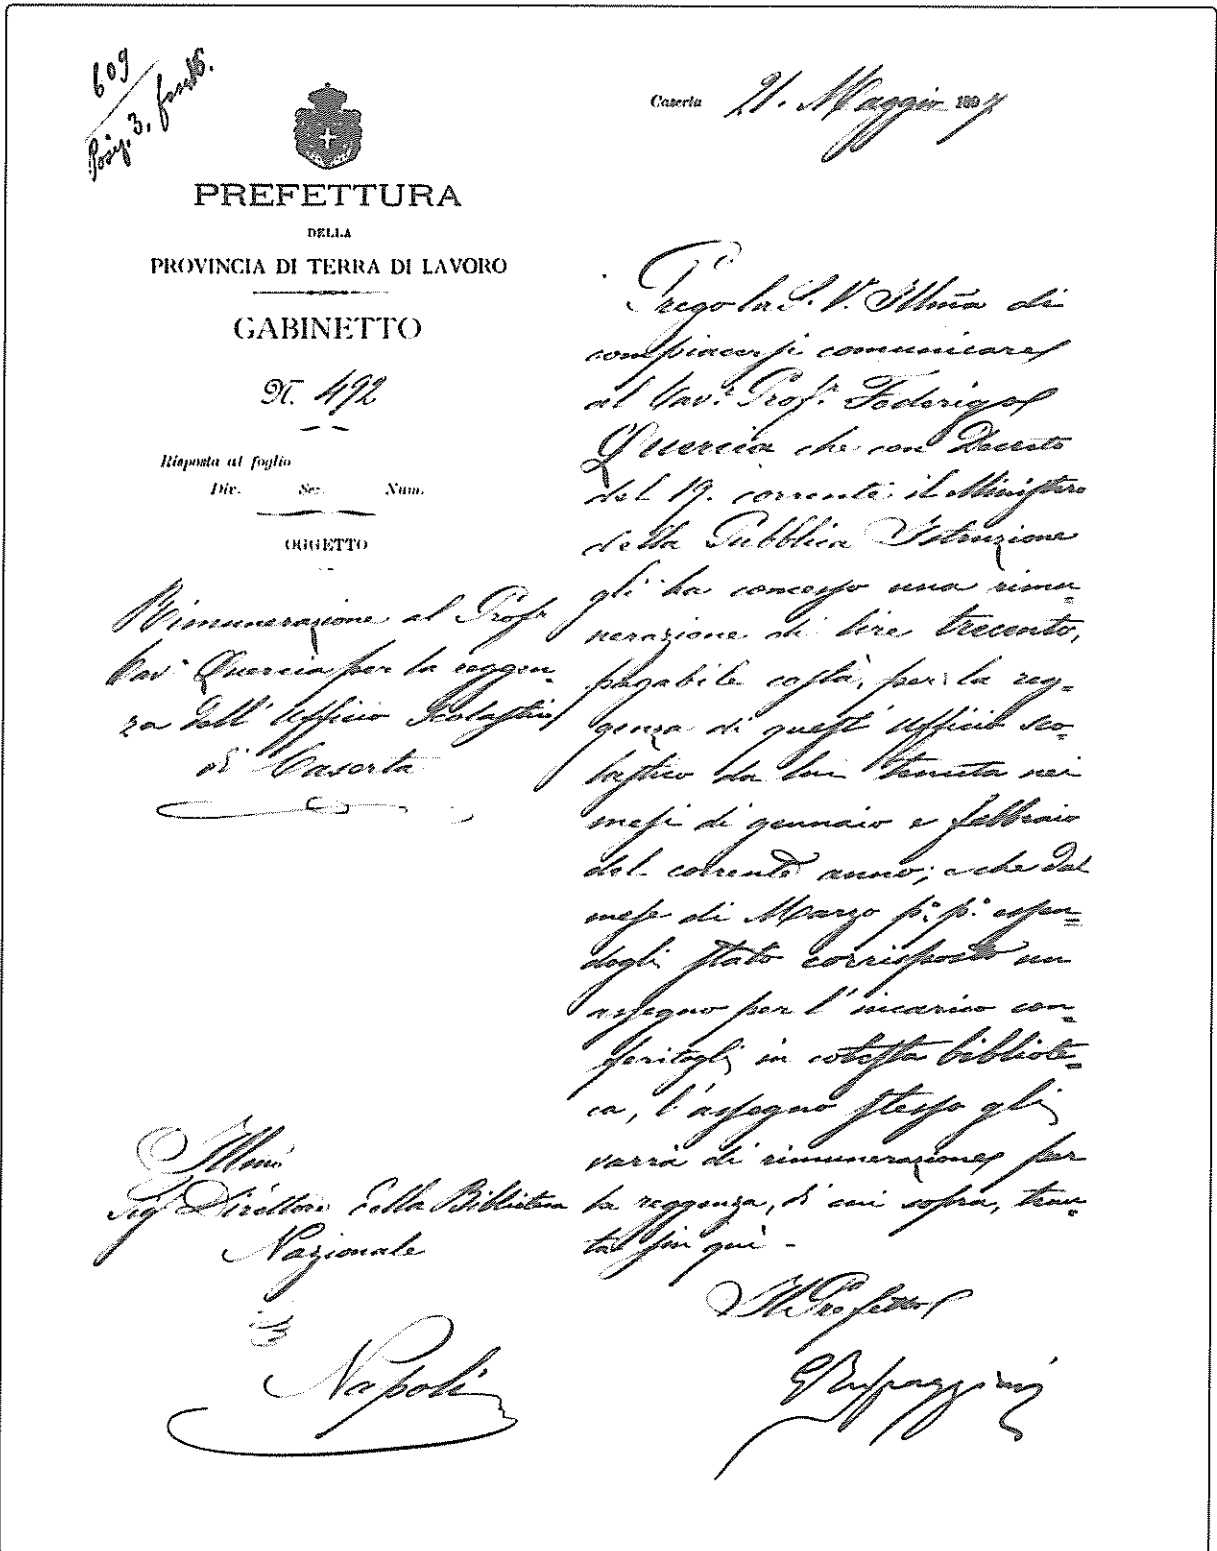 609
Posiz. 3,
PREFETTURA
DELLA
PROVINCIA DI TERRA DI LAVORO
GABINETTO
N. 492
Risposta al foglio
Div. Sez. Num.
OGGETTO
Rimunerazione al Profr
Cavr Quercia per la reggen-
za dell' Ufficio Scolastico
di Caserta
Illmo
Sigr Direttore della Biblioteca
Nazionale
Napoli
Caserta 21. Maggio 189
Prego la S. V. Illma di
compiacersi comunicare
al Cavr. Profr. Federigo
Quercia che con Decreto
del 19. corrente il Ministero
della Pubblica Istruzione
gli ha concesso una rimu-
nerazione di lire trecento,
pagabile costà, per la reg-
genza di quest' ufficio sco-
lastico da lui tenuta nei
mesi di gennaio e febbraio
del corrente anno; e che dal
mese di Marzo p.° p.° essen-
dogli stato corrisposto un
assegno per l'incarico con-
feritogli in cotesta bibliote-
ca, l'assegno stesso gli
varrà di rimunerazione per
la reggenza, di cui sopra, tenu-
ta fin quì -
Il Prefetto